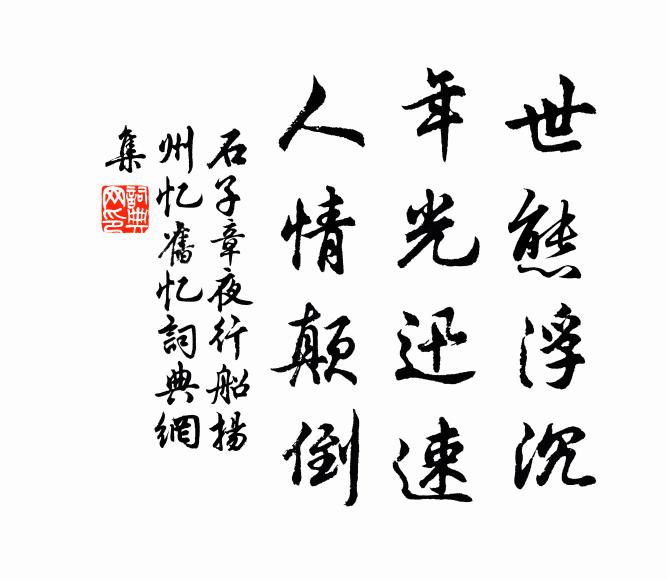 世態浮沉
年光迅速
人情颠倒
石子章夜行船揚
州忆舊忆詞典網
集
詞典
网印